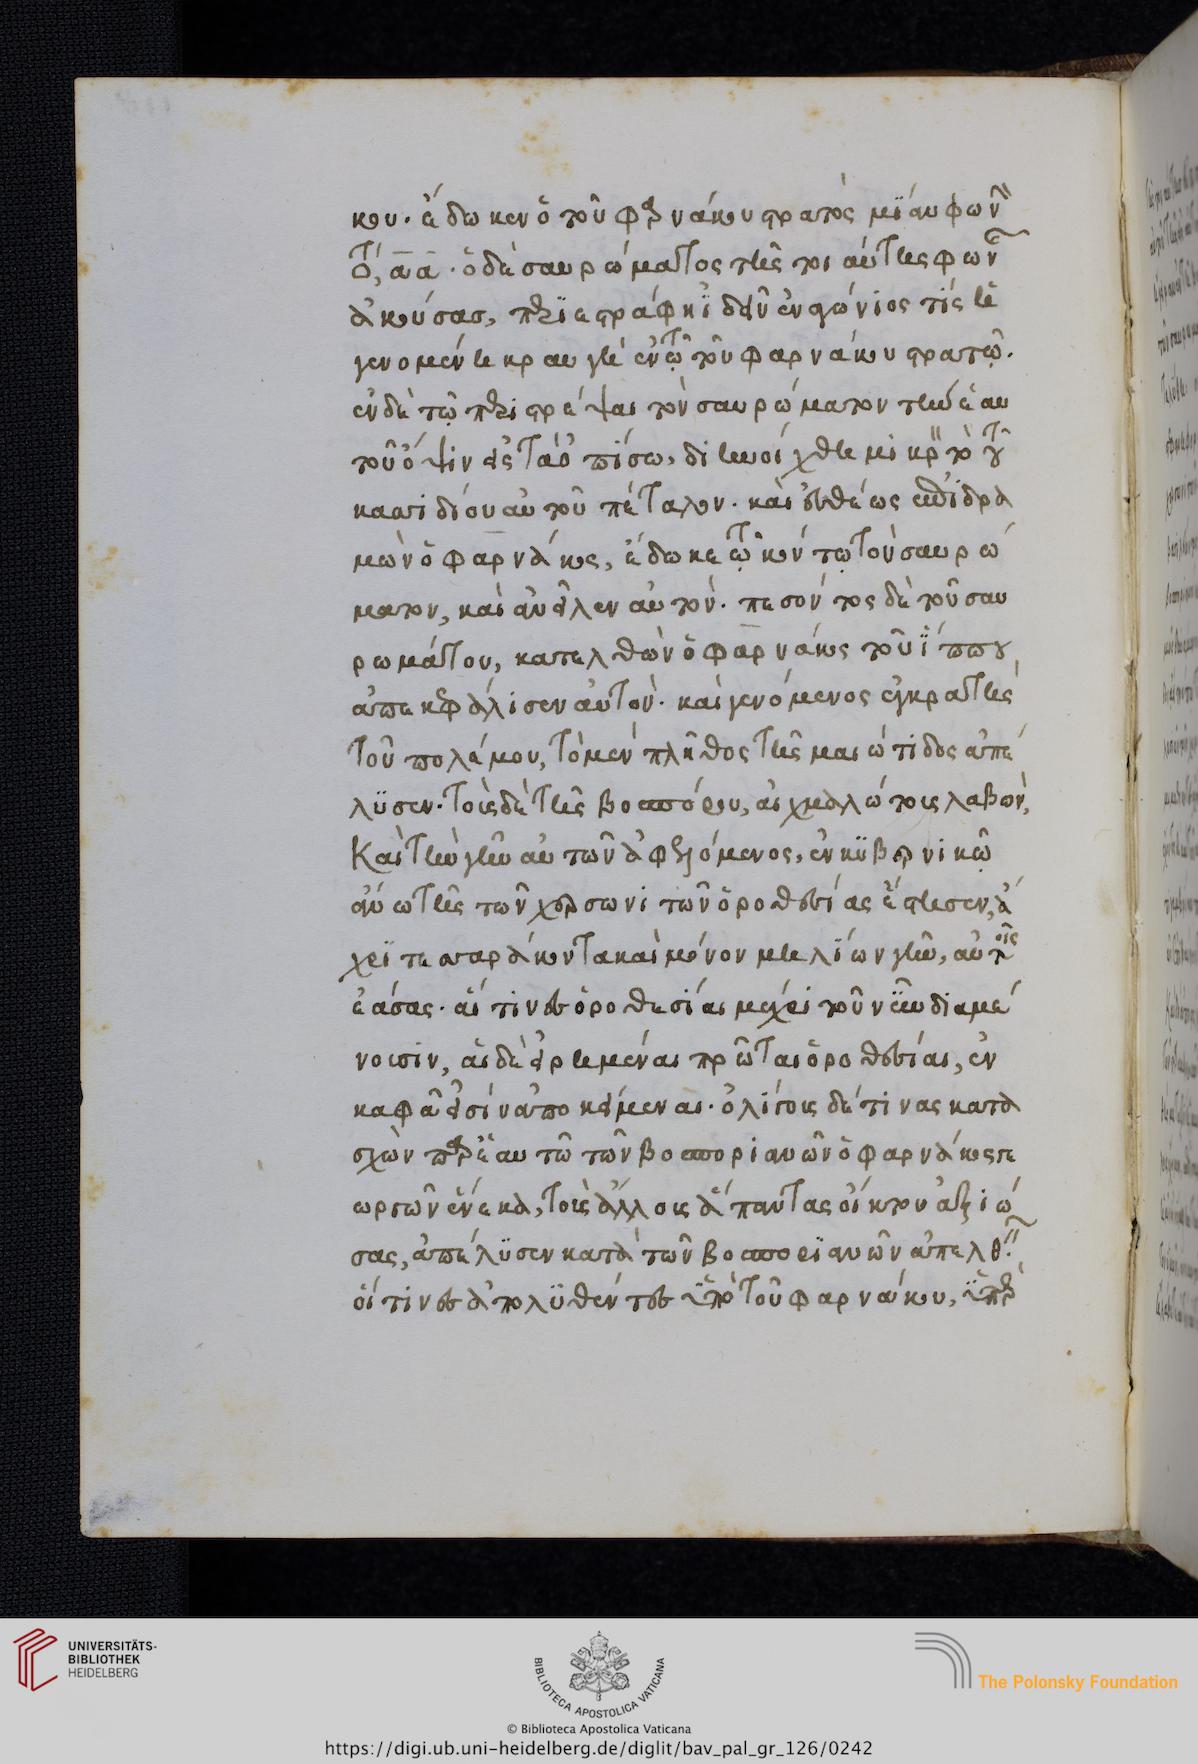 κου· ἔδωκεν ὁ τοῦ φαρνάκου στρατὸς μίαν φωνὴν
τὸ, ἆ ἆ· ὁ δὲ σαυρώματος τῆς τοιαύτης φωνῆς
ἀκούσας, περιεστράφη ἰδεῖν ἐν φώνιος τίς ἡ
γενομένη κραυγὴ ἐν τῷ τοῦ φαρνάκου στρατῷ.
ἐν δὲ τῷ περιστρέψαι τὸν σαυρώματον τὴν ἑαυ
τοῦ ὄψιν εἰς τὰ ὀπίσω, διηνοίχθη μικρὸν τὸ τοῦ
κασιδίου αὐτοῦ πέταλον. καὶ εὐθέως ἐπιδρα
μὼν ὁ φαρνάκος, ἔδωκε τῷ κοντῷ τὸν σαυρώ
ματον, καὶ ἀνεῖλεν αὐτόν. πεσόντος δὲ τοῦ σαυ
ρωμάτου, κατελθὼν ὁ φαρνάκος τοῦ ἵππου,
ἀπεκεφάλισεν αὐτόν. καὶ γενόμενος ἐγκρατὴς
τοῦ πολέμου, τὸ μὲν πλῆθος τῆς μαιώτιδος ἀπέ
λυσεν. τοὺς δὲ τῆς βοσπόρου, αἰχμαλώτους λαβὼν,
καὶ τὴν γῆν αὐτῶν ἀφελόμενος, ἐν κυβερνικῷ
ἄνω τῆς τῶν χερσωνιτῶν ὁροθεσίας ἔστησεν, ἄ
χρι τεσσαράκοντα καὶ μόνον μηλίων γῆν, αὐτοῖς
ἐάσας. αἵτινες ὁροθεσίαι μέχρι τοῦ νῦν διαμέ
νουσιν, αἱ δὲ εἰρημέναι πρῶται ὁροθεσίαι, ἐν
καφᾷ εἰσὶν ἀποκείμεναι. ὀλίγους δέ τινας κατα
σχὼν παρ' ἑαυτῷ τῶν βοσποριανῶν ὁ φαρνάκος ζε
ωργῶν ἕνεκα, τοὺς ἄλλους ἅπαντας οἴκτου ἀξιώ
σας, ἀπέλυσεν κατὰ τῶν βοσποριανῶν ἀπελθεῖν.
οἵτινες ἀπολυθέντες ὑπὸ τοῦ φαρνάκου, ὑπὲρ
UNIVERSITÄTS-
BIBLIOTHEK
HEIDELBERG
BIBLIOTECA APOSTOLICA VATICANA
The Polonsky Foundation
© Biblioteca Apostolica Vaticana
https://digi.ub.uni-heidelberg.de/diglit/bav_pal_gr_126/0242